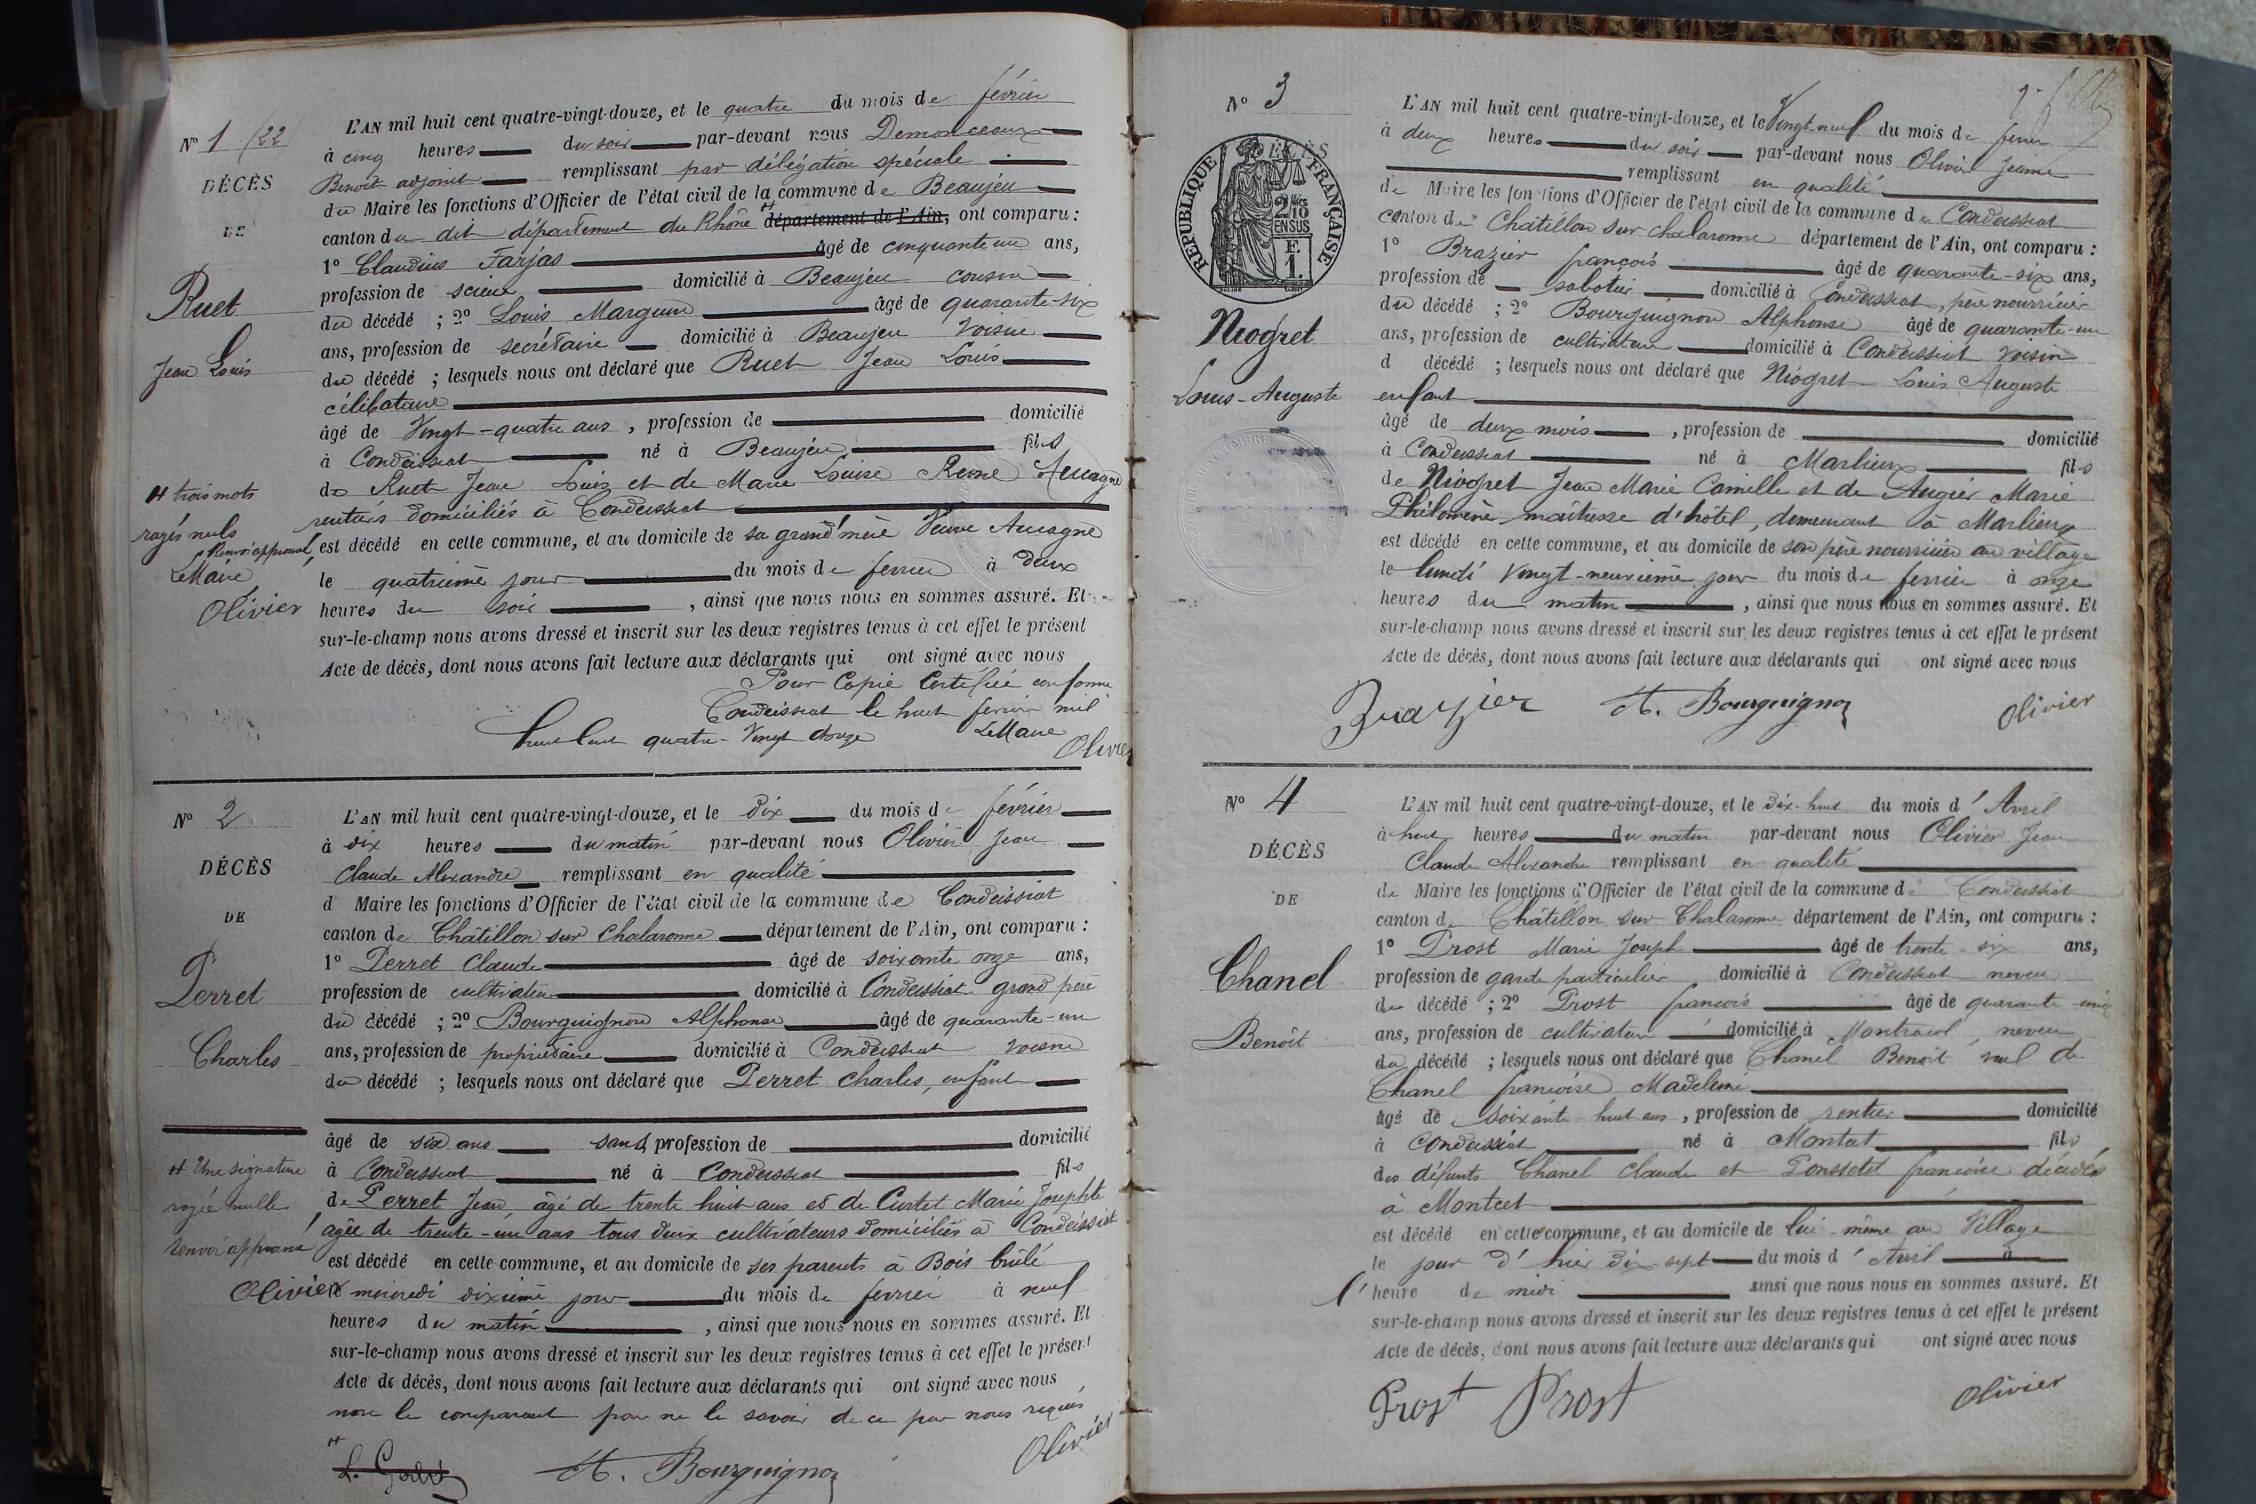 N° 1 (22)
DÉCÈS
DE
Ruet
Jean Louis
L'AN mil huit cent quatre-vingt-douze, et le quatre du mois de février
à cinq heures du soir par-devant nous Demonceaux
Benoit adjoint remplissant par délégation spéciale
du Maire les fonctions d'Officier de l'état civil de la commune de Beaujeu
canton du dit département du Rhône département de l'Ain, ont comparu :
1° Claudius Farjas âgé de cinquante un ans,
profession de domicilié à Beaujeu cousin
du décédé ; 2° Louis âgé de quarante-six
ans, profession de secrétaire domicilié à Beaujeu voisin
du décédé ; lesquels nous ont déclaré que Ruet Jean Louis
célibataire
âgé de Vingt-quatre ans, profession de domicilié
à Condeissiat né à Beaujeu fils
de Ruet Jean Louis et de Marie Louise Reine Aucagne
rentiers domiciliés à Condeissiat
est décédé en cette commune, et au domicile de sa grand'mère Veuve Aucagne
le quatrième jour du mois de février à deux
heures du soir, ainsi que nous nous en sommes assuré. Et
sur-le-champ nous avons dressé et inscrit sur les deux registres tenus à cet effet le présent
Acte de décès, dont nous avons fait lecture aux déclarants qui ont signé avec nous
Pour Copie Certifiée conforme
Condeissiat le huit février mil
huit cent quatre-Vingt douze Le Maire
Olivier
trois mots
rayés nuls
Renvoi approuvé
Le Maire
Olivier
N° 2
DÉCÈS
DE
Perret
Charles
L'AN mil huit cent quatre-vingt-douze, et le dix du mois de février
à dix heures du matin par-devant nous Olivier Jean
Claude Alexandre remplissant en qualité
d Maire les fonctions d'Officier de l'état civil de la commune de Condeissiat
canton de Châtillon sur Chalaronne département de l'Ain, ont comparu :
1° Perret Claude âgé de soixante onze ans,
profession de cultivateur domicilié à Condeissiat grand père
du décédé ; 2° Bourguignon Alphonse âgé de quarante-un
ans, profession de propriétaire domicilié à Condeissiat voisin
du décédé ; lesquels nous ont déclaré que Perret Charles, enfant
âgé de six ans sans profession de domicilié
à Condeissiat né à Condeissiat fils
de Perret Jean, âgé de trente huit ans et de Curtet Marie Josephte
agée de trente-un ans tous deux cultivateurs domiciliés à Condeissiat
est décédé en cette commune, et au domicile de ses parents à Bois brûlé
le mercredi dixième jour du mois de février à neuf
heures du matin, ainsi que nous nous en sommes assuré. Et
sur-le-champ nous avons dressé et inscrit sur les deux registres tenus à cet effet le présent
Acte de décès, dont nous avons fait lecture aux déclarants qui ont signé avec nous
non le comparant pour ne le savoir de ce par nous requis
A. Bourguignon
Olivier
Une signature
rayée nulle
renvoi approuvé
Olivier
N° 3
RÉPUBLIQUE FRANÇAISE
2/10 EN SUS
F. 1.
DÉCÈS
Niogret
Louis-Auguste
L'AN mil huit cent quatre-vingt-douze, et le Vingt-neuf du mois de février
à deux heures du soir par-devant nous Olivier
remplissant en qualité
de Maire les fonctions d'Officier de l'état civil de la commune de Condeissiat
canton de Châtillon sur chalaronne département de l'Ain, ont comparu :
1° Brazier françois âgé de quarante-six ans,
profession de sabotier domicilié à Condeissiat, père nourricier
du décédé ; 2° Bourguignon Alphonse âgé de quarante-un
ans, profession de cultivateur domicilié à Condeissiat voisin
d décédé ; lesquels nous ont déclaré que Niogret Louis Auguste
enfant
âgé de deux mois, profession de domicilié
à Condeissiat né à Marlieux fils
de Niogret Jean Marie Camille et de Augier Marie
Philomène maîtresse d'hôtel, demeurant à Marlieux
est décédé en cette commune, et au domicile de son père nourricier au village
le lundi Vingt-neuvième jour du mois de février à onze
heures du matin, ainsi que nous nous en sommes assuré. Et
sur-le-champ nous avons dressé et inscrit sur les deux registres tenus à cet effet le présent
Acte de décès, dont nous avons fait lecture aux déclarants qui ont signé avec nous
Brazier A. Bourguignon Olivier
N° 4
DÉCÈS
DE
Chanel
Benoît
L'AN mil huit cent quatre-vingt-douze, et le dix-huit du mois d'Avril
à huit heures du matin par-devant nous Olivier Jean
Claude Alexandre remplissant en qualité
de Maire les fonctions d'Officier de l'état civil de la commune de Condeissiat
canton de Châtillon sur Chalaronne département de l'Ain, ont comparu :
1° Prost Marie Joseph âgé de trente-six ans,
profession de garde particulier domicilié à Condeissiat neveu
du décédé ; 2° Prost françois âgé de quarante-cinq
ans, profession de cultivateur domicilié à Montracol, neveu
du décédé ; lesquels nous ont déclaré que Chanel Benoît veuf de
Chanel françoise Madeleine
âgé de soixante-huit ans, profession de rentier domicilié
à Condeissiat né à Montcet fils
des défunts Chanel Claude et françoise décédés
à Montcet
est décédé en cette commune, et au domicile de lui-même au Village
le jour d'hier dix-sept du mois d'Avril à
l'heure de midi ainsi que nous nous en sommes assuré. Et
sur-le-champ nous avons dressé et inscrit sur les deux registres tenus à cet effet le présent
Acte de décès, dont nous avons fait lecture aux déclarants qui ont signé avec nous
Prost Prost Olivier